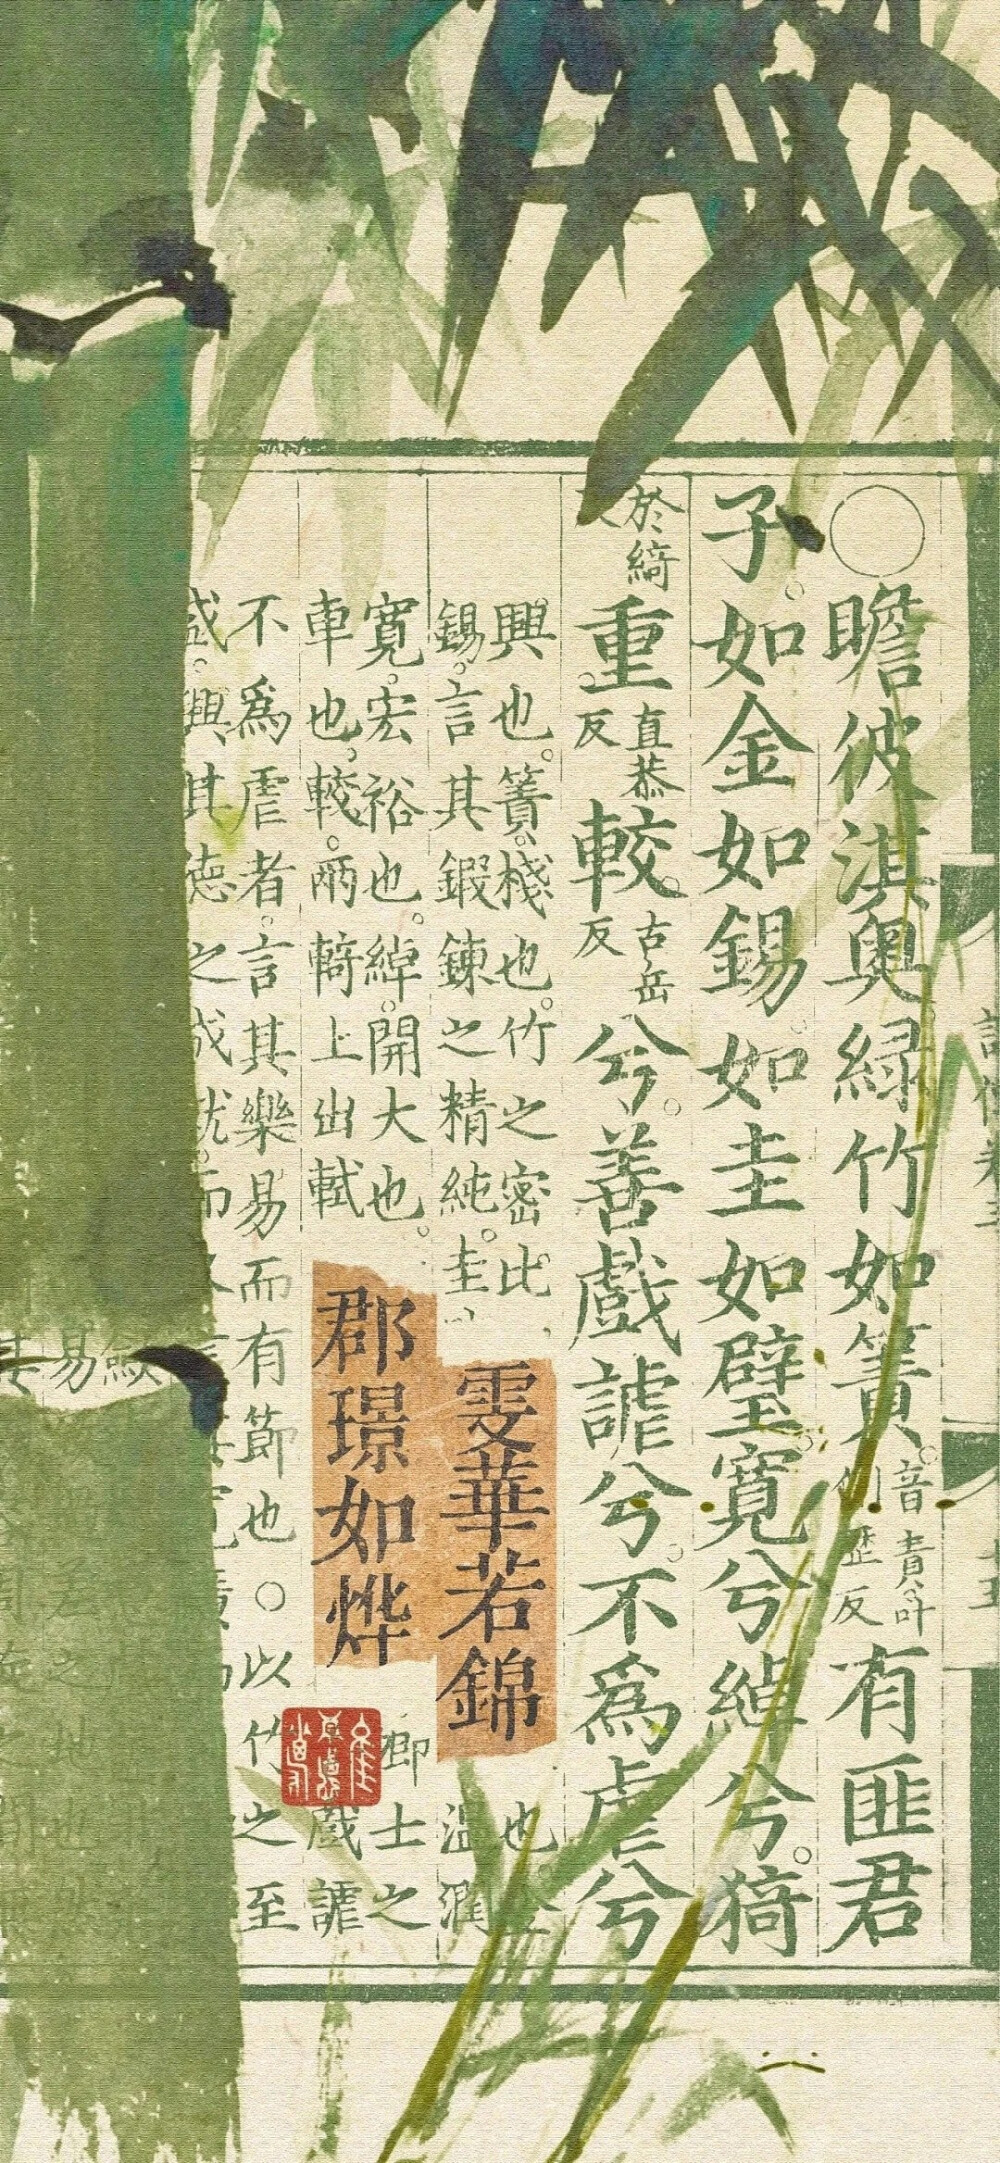 ○瞻彼淇奥緑竹如簀。音責叶側歴反有匪君
子。如金如錫。如圭如璧。寛兮綽兮。猗
於綺重直恭反較。古岳反兮。善戲謔兮。不為虐兮
興也。簀。棧也。竹之密比
也。金
錫。言其鍛鍊之精純。圭
溫潤
寛。宏裕也。綽。開大也。
卿士之
車也。較。兩輢上出軾
戲謔
不為虐者。言其樂易而有節也○以竹之至
盛。興其德之成就。而
雯華若錦
郡璟如烨